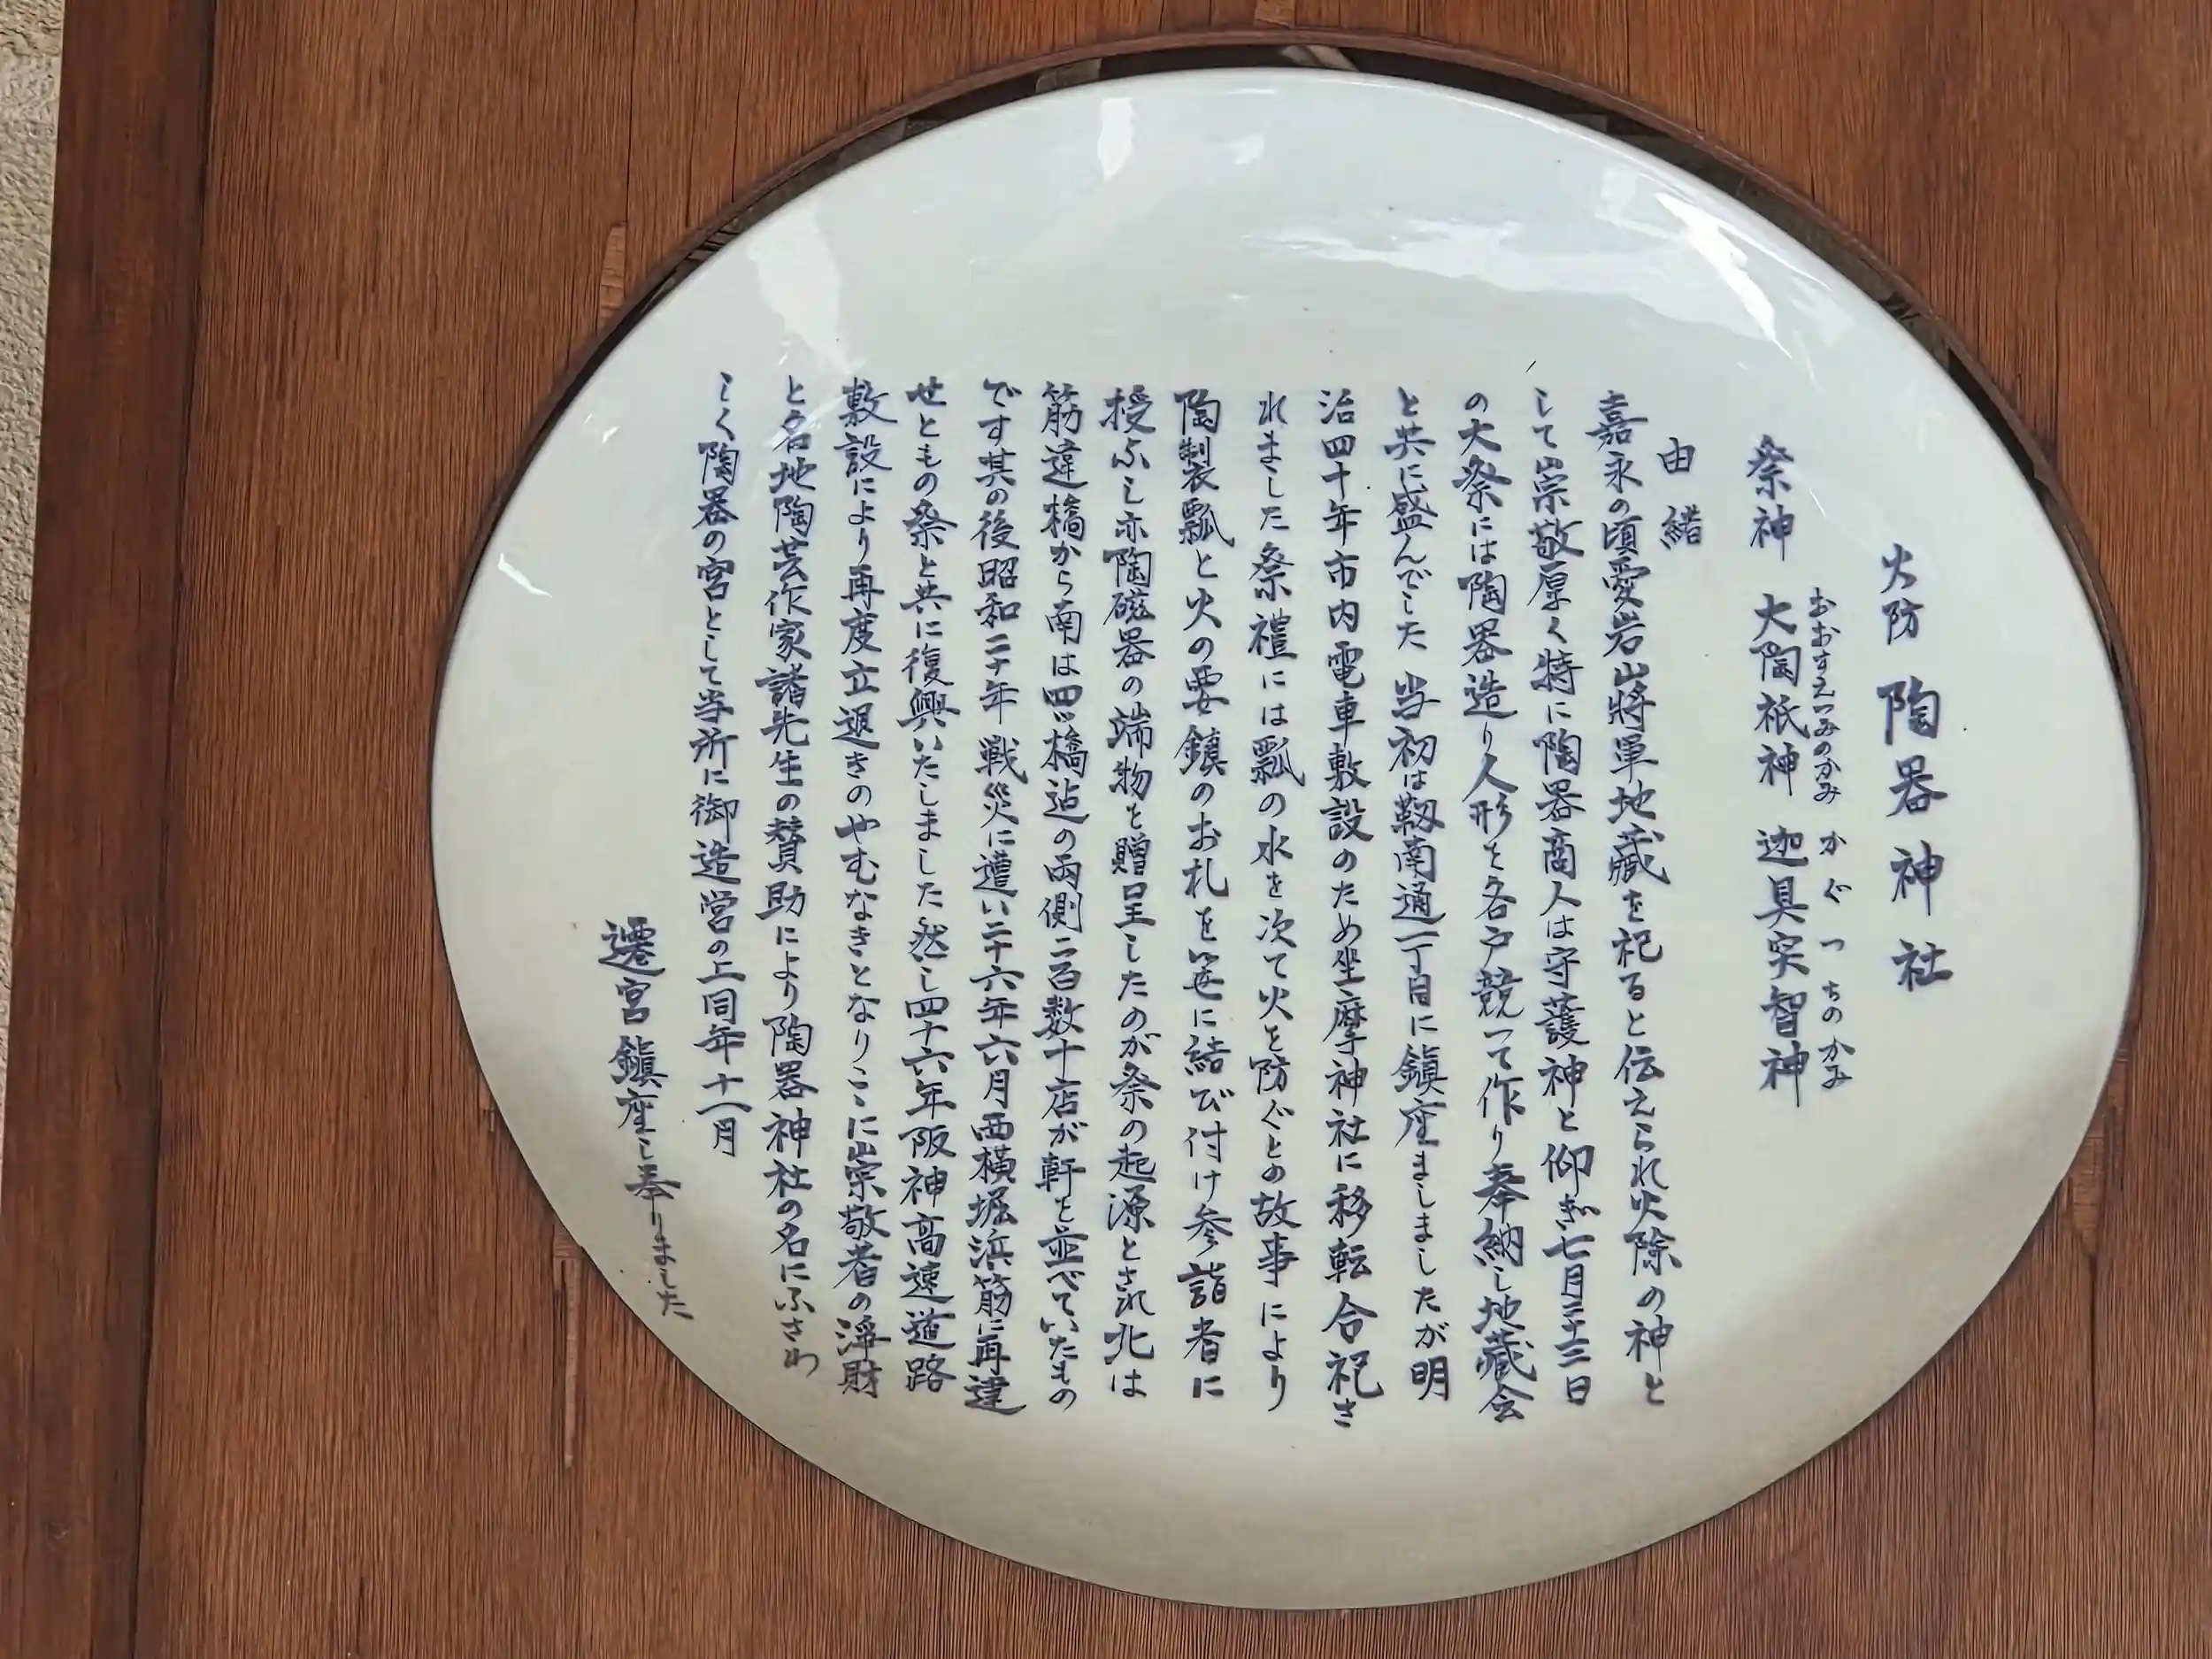 火防 陶器神社
おおすえつみのかみ かぐつちのかみ
祭神 大陶祇神 迦具突智神
由緒
嘉永の頃愛宕山將軍地蔵を祀ると伝えられ火除の神と
して崇敬厚く特に陶器商人は守護神と仰ぎ七月二十三日
の大祭には陶器造り人形を各戸競って作り奉納し地蔵会
と共に盛んでした 当初は靱南通一丁目に鎮座ましましたが明
治四十年市内電車敷設のため坐摩神社に移転合祀さ
れました祭禮には瓢の水を次て火を防ぐとの故事により
陶製瓢と火の要鎮のお札を笹に結び付け参詣者に
授ふし亦陶磁器の端物を贈呈したのが祭の起源とされ北は
筋違橋から南は四ツ橋迠の両側二百数十店が軒を並べていたもの
です其の後昭和二十年戦災に遭い二十六年六月西横堀浜筋に再建
せともの祭と共に復興いたしました然し四十六年阪神高速道路
敷設により再度立退きのやむなきとなりここに崇敬者の浄財
と各地陶芸作家諸先生の賛助により陶器神社の名にふさわ
しく陶器の宮として当所に御造営の上同年十一月
遷宮鎮座し奉りました